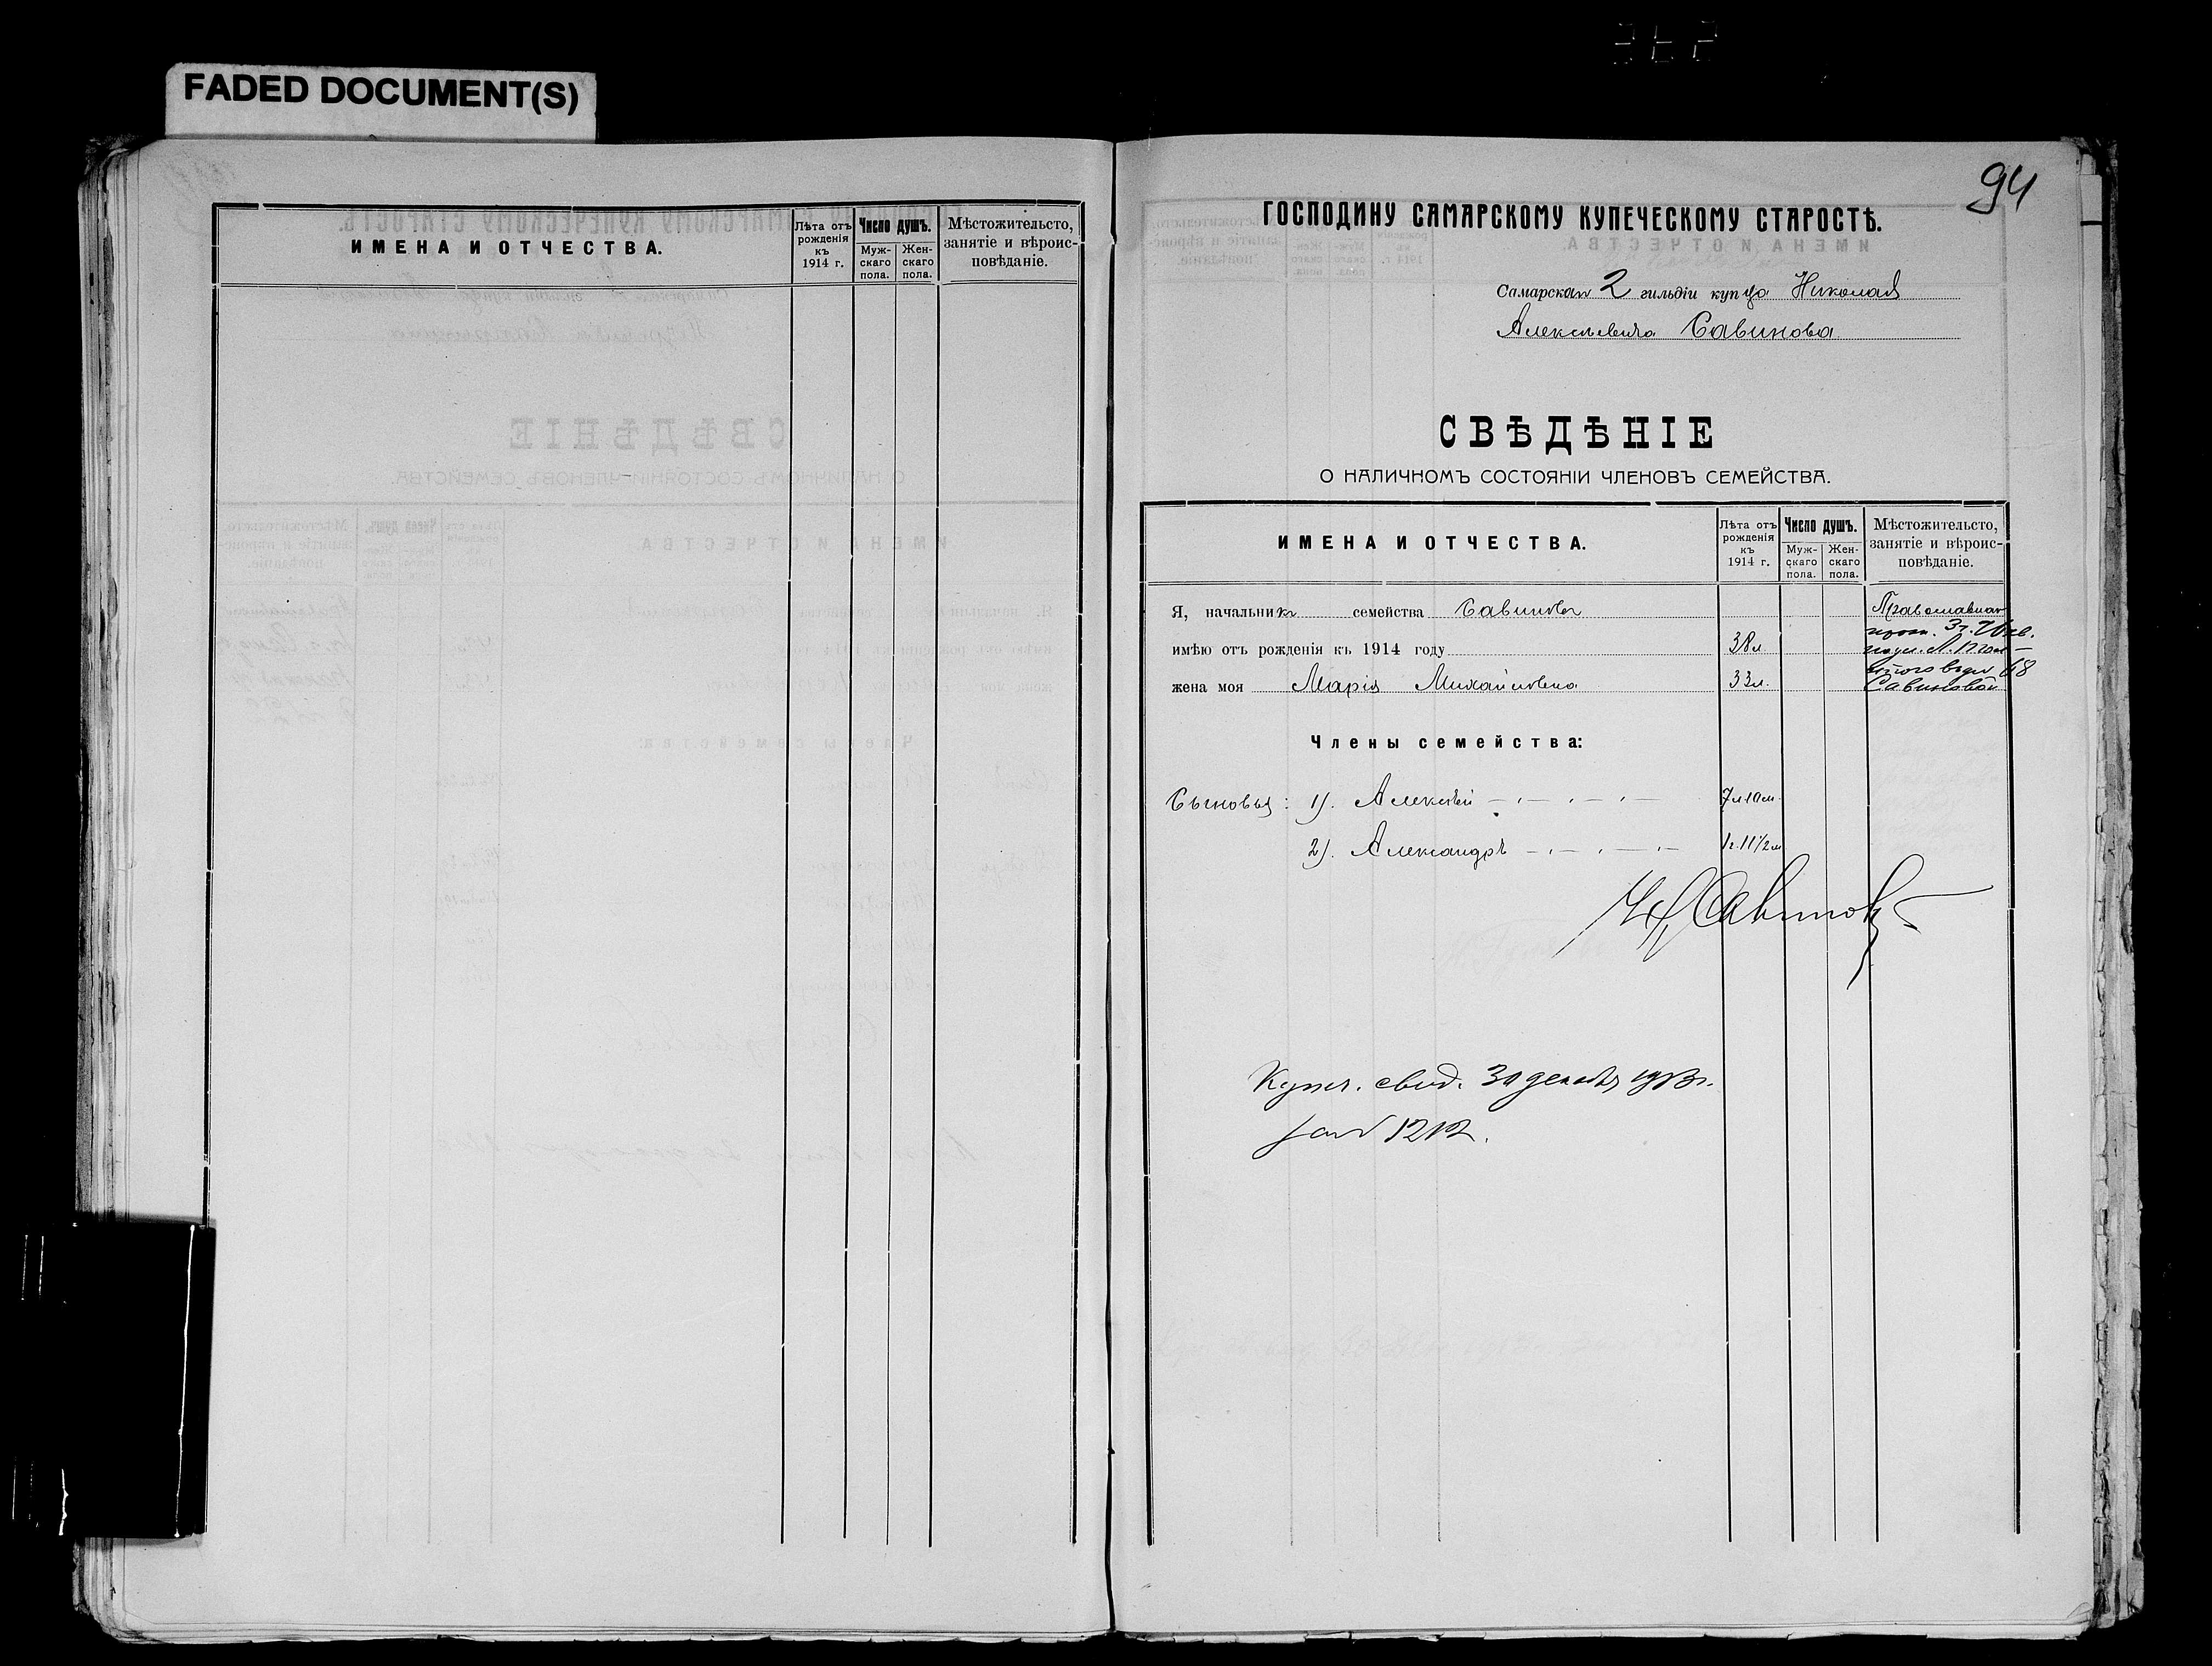 FADED DOCUMENT(S)
ИМЕНА И ОТЧЕСТВА.
Лѣта отъ рожденія къ 1914 г.
Число душъ.
Муж-скаго пола.
Жен-скаго пола.
Мѣстожительсто, занятіе и вѣроис-повѣданіе.
94
ГОСПОДИНУ САМАРСКОМУ КУПЕЧЕСКОМУ СТАРОСТѢ.
Самарскаго 2 гильдіи купца Николая
Алексѣевича Савинова
СВѢДѢНІЕ
О НАЛИЧНОМЪ СОСТОЯНІИ ЧЛЕНОВЪ СЕМЕЙСТВА.
ИМЕНА И ОТЧЕСТВА.
Лѣта отъ рожденія къ 1914 г.
Число душъ.
Муж-скаго пола.
Жен-скаго пола.
Мѣстожительсто, занятіе и вѣроис-повѣданіе.
Я, начальникъ семейства Савиновъ Православная
имѣю отъ рожденія къ 1914 году 38 л.
жена моя Марія Михайловна 33 л. Савиновой
Члены семейства:
Сыновья: 1). Алексѣй 7 л 10 м.
2). Александръ 1 г. 11 1/2 м
Н А Савиновъ
Купеч. свид. 30 декабря 1913 г.
за № 1212.